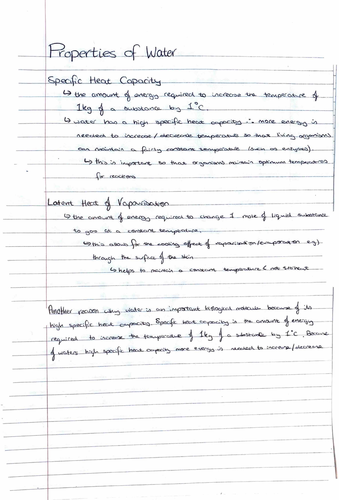 Properties of Water
Specific Heat Capacity
↳ the amount of energy required to increase the temperature of
1kg of a substance by 1°C.
↳ water has a high specific heat capacity ∴ more energy is
needed to increase/decrease temperature so that living organisms
can maintain a fairly constant temperature (such as enzymes).
↳ this is important so that organisms maintain optimum temperatures
for reactions
Latent Heat of Vaporisation
↳ the amount of energy required to change 1 mole of liquid substance
to gas at a constant temperature.
↳ this allows for the cooling effect of vaporisation/evaporation eg)
through the surface of the skin
↳ helps to maintain a constant temperature & not
Another reason why water is an important biological molecule because of its
high specific heat capacity. Specific heat capacity is the amount of energy
required to increase the temperature of 1kg of a substance by 1°C. Because
of waters high specific heat capacity more energy is needed to increase/decrease